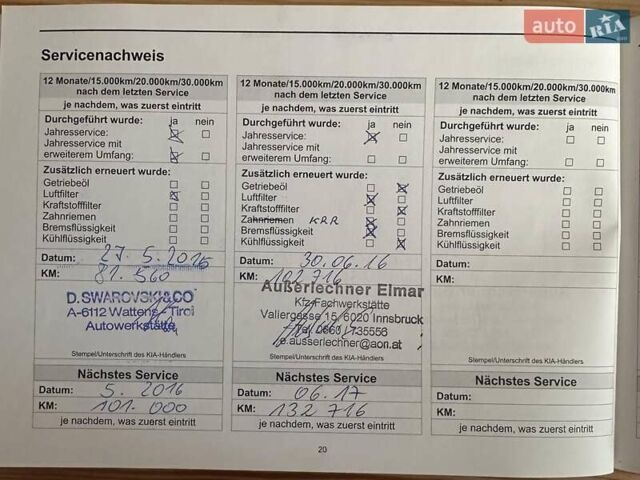 auto RIA
.com
Servicenachweis
12 Monate/15.000km/20.000km/30.000km
nach dem letzten Service
je nachdem, was zuerst eintritt
Durchgeführt wurde: ja nein
Jahresservice:
Jahresservice mit
erweiterem Umfang:
Zusätzlich erneuert wurde:
Getriebeöl
Luftfilter
Kraftstoffilter
Zahnriemen
Bremsflüssigkeit
Kühlflüssigkeit
Datum: 27. 5. 2015
KM: 81. 560
D.SWAROVSKI&CO
A-6112 Wattens - Tirol
Autowerkstätte
Stempel/Unterschrift des KIA-Händlers
Nächstes Service
Datum: 5. 2016
KM: 101. 000
je nachdem, was zuerst eintritt
12 Monate/15.000km/20.000km/30.000km
nach dem letzten Service
je nachdem, was zuerst eintritt
Durchgeführt wurde: ja nein
Jahresservice:
Jahresservice mit
erweiterem Umfang:
Zusätzlich erneuert wurde:
Getriebeöl
Luftfilter
Kraftstoffilter
Zahnriemen KRR
Bremsflüssigkeit
Kühlflüssigkeit
Datum: 30.06.16
KM: 102 716
Außerlechner Elmar
Kfz-Fachwerkstätte
Valiergasse 15, 6020 Innsbruck
Tel. 0660 / 735556
e.ausserlechner@aon.at
Stempel/Unterschrift des KIA-Händlers
Nächstes Service
Datum: 06.17
KM: 132 716
je nachdem, was zuerst eintritt
12 Monate/15.000km/20.000km/30.000km
nach dem letzten Service
je nachdem, was zuerst eintritt
Durchgeführt wurde: ja nein
Jahresservice:
Jahresservice mit
erweiterem Umfang:
Zusätzlich erneuert wurde:
Getriebeöl
Luftfilter
Kraftstoffilter
Zahnriemen
Bremsflüssigkeit
Kühlflüssigkeit
Datum:
KM:
Stempel/Unterschrift des KIA-Händlers
Nächstes Service
Datum:
KM:
je nachdem, was zuerst eintritt
20